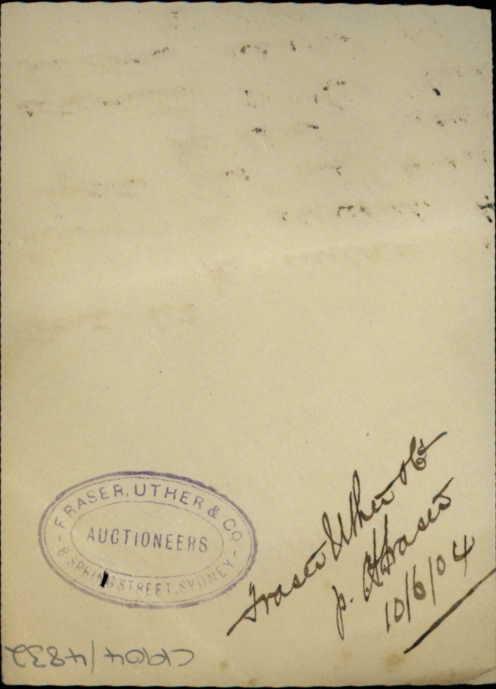 FRASER, UTHER & CO
AUCTIONEERS
8 SPRING STREET, SYDNEY
Fraser Uther & Co
p. Fraser
10/6/04
C1904/4832